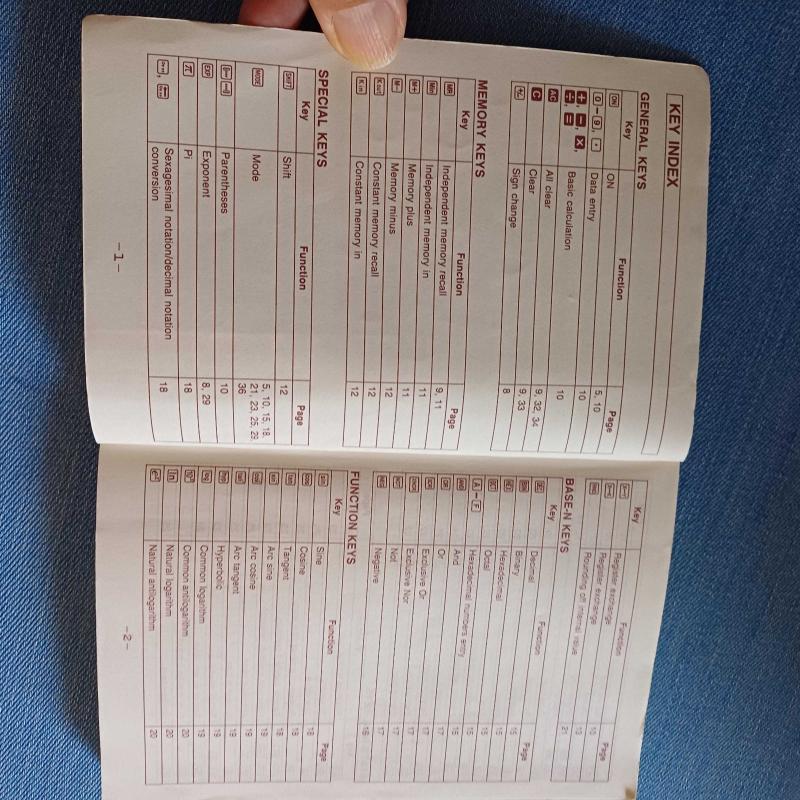 KEY INDEX
GENERAL KEYS
Key Function Page
ON ON 5, 10
0 – 9, · Data entry 10
+, −, ×,
÷, = Basic calculation 10
AC All clear 9, 32, 34
C Clear 9, 33
+/− Sign change 8
MEMORY KEYS
Key Function Page
MR Independent memory recall 9, 11
Min Independent memory in 11
M+ Memory plus 11
M− Memory minus 12
Kout Constant memory recall 12
Kin Constant memory in 12
SPECIAL KEYS
Key Function Page
SHIFT Shift 12
MODE Mode 5, 10, 15, 18,
21, 23, 25, 29,
36
Parentheses 10
EXP Exponent 8, 29
π Pi 18
Sexagesimal notation/decimal notation
conversion 18
– 1 –
Key Function Page
Register exchange
Register exchange
Rounding of internal value 21
BASE-N KEYS
Key Function Page
Decimal 15
Binary 15
Hexadecimal 15
Octal 15
A – F Hexadecimal numbers entry 15
And
Or 17
Exclusive Or 17
Exclusive Nor 17
Not 17
Negative
FUNCTION KEYS
Key Function Page
sin Sine 18
cos Cosine 18
tan Tangent 18
Arc sine 18
Arc cosine 19
Arc tangent 19
hyp Hyperbolic 19
log Common logarithm 19
Common antilogarithm 20
ln Natural logarithm 20
Natural antilogarithm 20
– 2 –